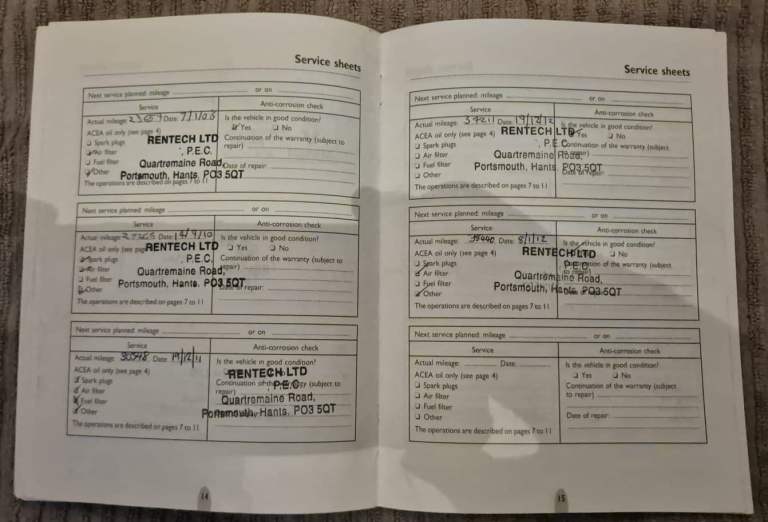 Service sheets
Next service planned: mileage or on
Service Anti-corrosion check
Actual mileage: Date: Is the vehicle in good condition?
ACEA oil only (see page 4) Yes No
Spark plugs RENTECH LTD Continuation of the warranty (subject to
Air filter P.E.C. repair)
Fuel filter Quartremaine Road, Date of repair:
Other Portsmouth, Hants. PO3 5QT
The operations are described on pages 7 to 11
Next service planned: mileage or on
Service Anti-corrosion check
Actual mileage: Date: Is the vehicle in good condition?
ACEA oil only (see page RENTECH LTD Yes No
Spark plug P.E.C. Continuation of the warranty (subject to
Air filter Quartremaine Road, repair)
Fuel filter Portsmouth, Hants. PO3 5QT
Other of repair:
The operations are described on pages 7 to 11
Next service planned: mileage or on
Service Anti-corrosion check
Actual mileage: 30548 Date: 19/12/11 Is the vehicle in good condition?
ACEA oil only (see page 4) RENTECH LTD
Spark plugs Continuation of (subject to
Air filter P.E.C repair)
Fuel filter Quartremaine Road,
Other Portsmouth, Hants. PO3 5QT
The operations are described on pages 7 to 11
14
Service sheets
Next service planned: mileage or on
Service Anti-corrosion check
Actual mileage: Date: 19/12/12 Is the vehicle in good condition?
ACEA oil only (see page 4) RENTECH LTD Yes No
Spark plugs P.E.C Continuation of the warranty (subject
Air filter Quartremaine Road, to repair)
Fuel filter Portsmouth, Hants. PO3 5QT
Other Date of repair:
The operations are described on pages 7 to 11
Next service planned: mileage or on
Service Anti-corrosion check
Actual mileage: Date: 8/1/12 Is the vehicle in good condition?
ACEA oil only (see page 4) RENTECH LTD
Spark plugs P.E.C. of the warranty (subject
Air filter Quartremaine Road, to repair)
Fuel filter Portsmouth, Hants. PO3 5QT
Other
The operations are described on pages 7 to 11
Next service planned: mileage or on
Service Anti-corrosion check
Actual mileage: Date: Is the vehicle in good condition?
ACEA oil only (see page 4) Yes No
Spark plugs Continuation of the warranty (subject
Air filter to repair)
Fuel filter
Other Date of repair:
The operations are described on pages 7 to 11
15